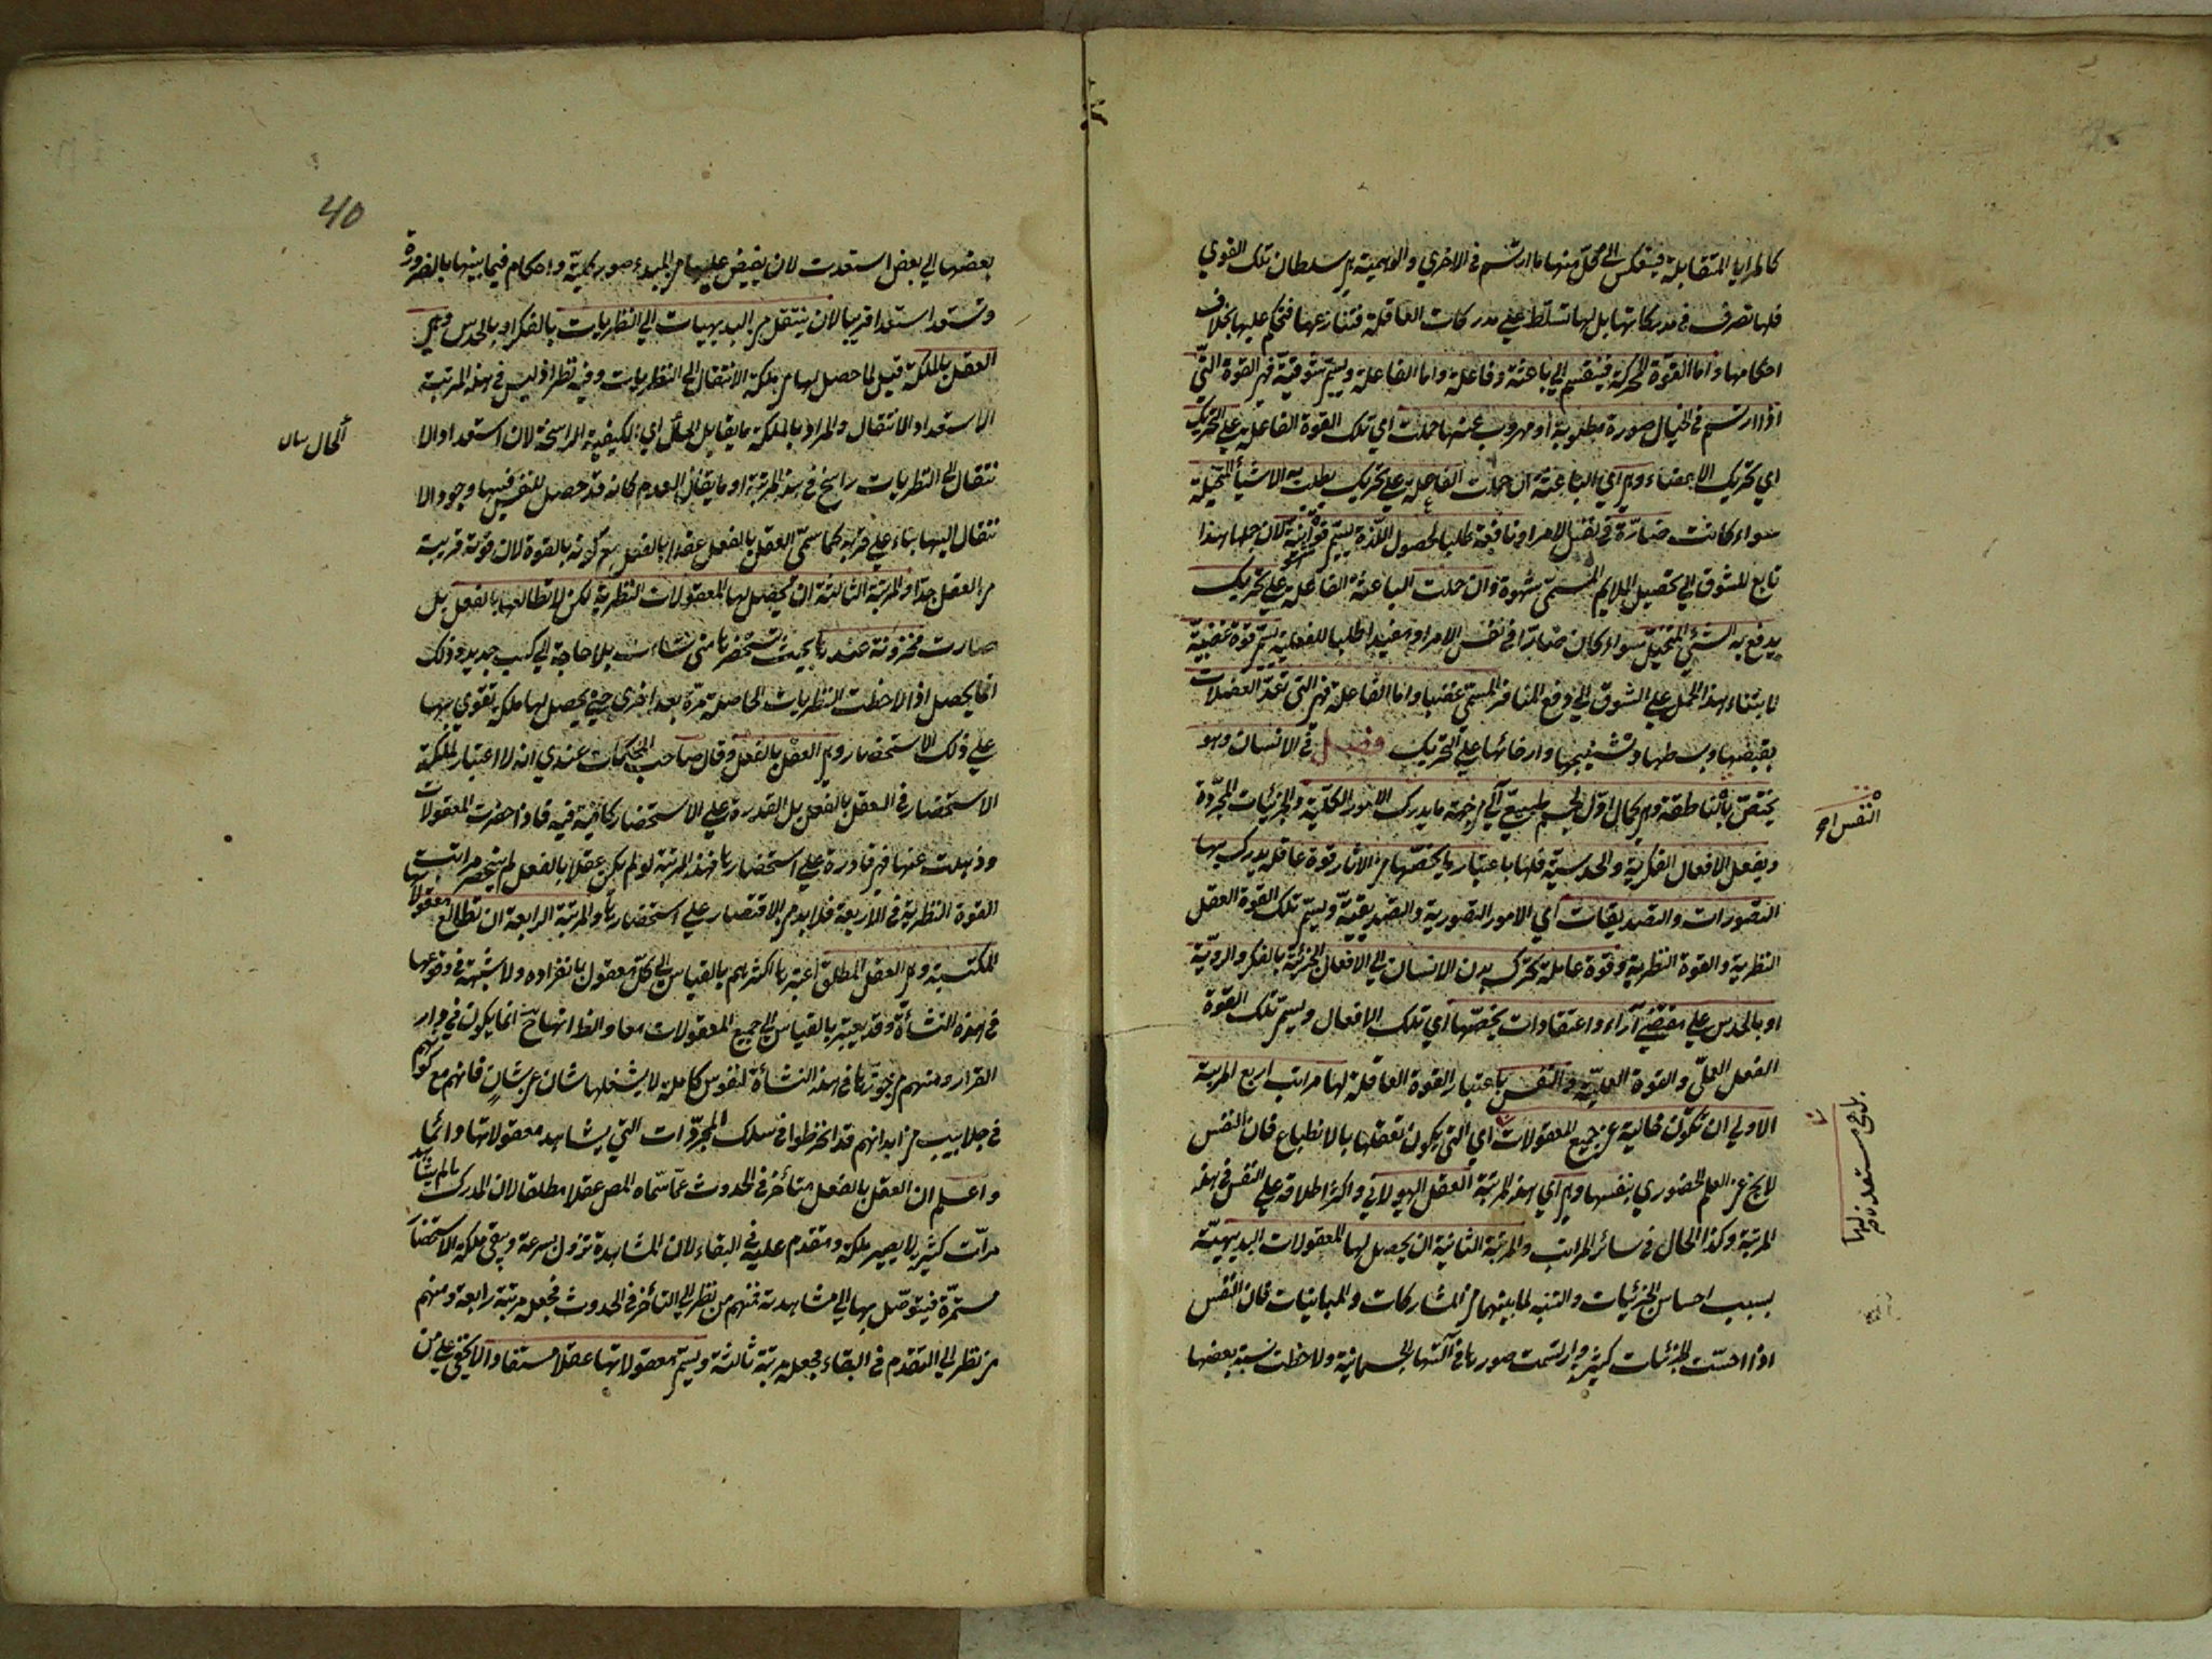 كالمرايا المتقابلة فينعكس الى كل منها ما ارتسم في الاخري والوهمية هي سلطان تلك القوي
فلها تصرف في مدركاتها بل لها تسلط علي مدركات العاقلة فتنازعها فتحكم عليها بخلاف
احكامها واما القوة المحركة فينقسم الي باعثة وفاعلة واما الباعثة ويسمي شوقية فهي القوة التي
اذا ارتسم في الخيال صورة مطلوبة او مهروب عنها حملت اي تلك القوة الفاعلية علي التحريك
اي تحريك الاعضاء وهي اي الباعثة ان حملت الفاعلة علي تحريك يطلب به الاشياء المتخيلة
سواء كانت ضارة في نفس الامر او نافعة طلبا لحصول اللذة يسمي قوة شهوانية لان حملها هذا
تابع للشوق الي تحصيل الملايم المسمي شهوة وان حملت الباعثة الفاعلة علي تحريك
يدفع به الشئ المتخيل سواء كان ضارا في نفس الامر او مفيدا طلبا للغلبة يسمي قوة غضبية
لابتناء هذا الحمل علي الشوق الي دفع المنافر المسمي غضبا واما الفاعلة فهي التي تعد العضلات
بقبضها وبسطها وتشنيجها وارخائها علي التحريك فصل في الانسان وهو
يختص بالنفس الناطقة وهي كمال اول لجسم طبيعي آلي من جهة ما يدرك الامور الكلية والجزئيات المجردة
ويفعل الافعال الفكرية والحدسية فلها باعتبار ما يخصها من الاثار قوة عاقلة يدرك بها
التصورات والتصديقات اي الامور التصورية والتصديقية ويسمي تلك القوة العقل
النظرية والقوة النظرية وقوة عاملة تحرك بدن الانسان الي الافعال الجزئية بالفكر والروية
او بالحدس علي مقتضي آراء واعتقادات يخصها اي تلك الافعال ويسمي تلك القوة
العقل العملي والقوة العملية والنفس باعتبار القوة العاقلة لها مراتب اربع المرتبة
الاولي ان تكون خالية عن جميع المعقولات اي التي يكون تعقلها بالانطباع فان النفس
لا يخ عن العلم الحضوري بنفسها وهي اي هذه المرتبة العقل الهيولاني واكثر اطلاقه علي النفس في هذه
المرتبة وكذا الحال في سائر المراتب والمرتبة الثانية ان يحصل لها المعقولات البديهية
بسبب احساس الجزئيات والتنبه لما بينهما من المشاركات والمباينات فان النفس
اذا احست الجزئيات كثيرة وارتسمت صورها في آلتها الجسمانية ولاحظت نسبة بعضها
النفس
بل هي مستعدة لها
40
بعضها الي بعض استعدت لان يفيض عليها من المبدء صور كلية واحكام فيما بينها بالضرورة
وتستعد استعدادا قريبا لان ينتقل من البديهيات الي النظريات بالفكر او بالحدس وهي
العقل بالملكة قيل لما حصل لها من ملكة الانتقال الي النظريات وفيه نظر اذ ليس في هذه المرتبة
الا استعداد الانتقال والمراد بالملكة ما يقابل الحال اي الكيفية الراسخة لان استعداد الا
نتقال الي النظريات راسخ في هذه المرتبة او ما يقابل العدم كانه قد حصل للنفس فيها وجود الا
نتقال اليها بناء علي قربه كما سمي العقل بالفعل عقلا بالفعل مع كونه بالقوة لان قوته قريبة
من العقل جدا والمرتبة الثالثة ان يحصل لها المعقولات النظرية لكن لا تطالعها بالفعل بل
صارت مخزونة عندها بحيث تستحضرها متي شاءت بلا حاجة الي كسب جديد وذلك
انما يحصل اذا لاحظت النظريات الحاصلة مرة بعد اخري حتي يحصل لها ملكة تقوي بها
علي ذلك الاستحضار وهي العقل بالفعل وقال صاحب المحاكمات عندي انه لا اعتبار لملكة
الاستحضار في العقل بالفعل بل القدرة علي الاستحضار كافية فيه فاذا حضرت المعقولات
وذهلت عنها فهي قادرة علي استحضارها فهذه المرتبة لو لم يكن عقلا بالفعل لم ينحصر مراتب
القوة النظرية في الاربعة فلا بد من الاقتصار علي استحضارها والمرتبة الرابعة ان تطالع معقولاتها
المكتسبة وهي العقل المطلق اعتبرها اكثرهم بالقياس الي كل معقول بانفراده ولا شبهة في وقوعها
في هذه النشأة وقد يعتبر بالقياس الي جميع المعقولات معا والظ انها ح انما يكون في دار
القرار ومنهم من جوزها في هذه النشأة لنفوس كاملة لا يشغلها شان عن شان فانهم مع كونهم
في جلابيب من ابدانهم قد انخرطوا في سلك المجردات التي يشاهد معقولاتها دائما
واعلم ان العقل بالفعل متأخر في الحدوث عما سماه المص عقلا مطلقا لان المدرك ما لم يشاهد
مرات كثيرة لا يصير ملكة ومتقدم عليه في البقاء لان المشاهدة تزول بسرعة ويبقي ملكة الاستحضار
مستمرة فيتوصل بها الي مشاهدته فمنهم من نظر الي التأخر في الحدوث فجعل مرتبة رابعة ومنهم
من نظر الي التقدم في البقاء فجعله مرتبة ثالثة ويسمي معقولاتها عقلا مستفادا لا يخفي علي من
الحال